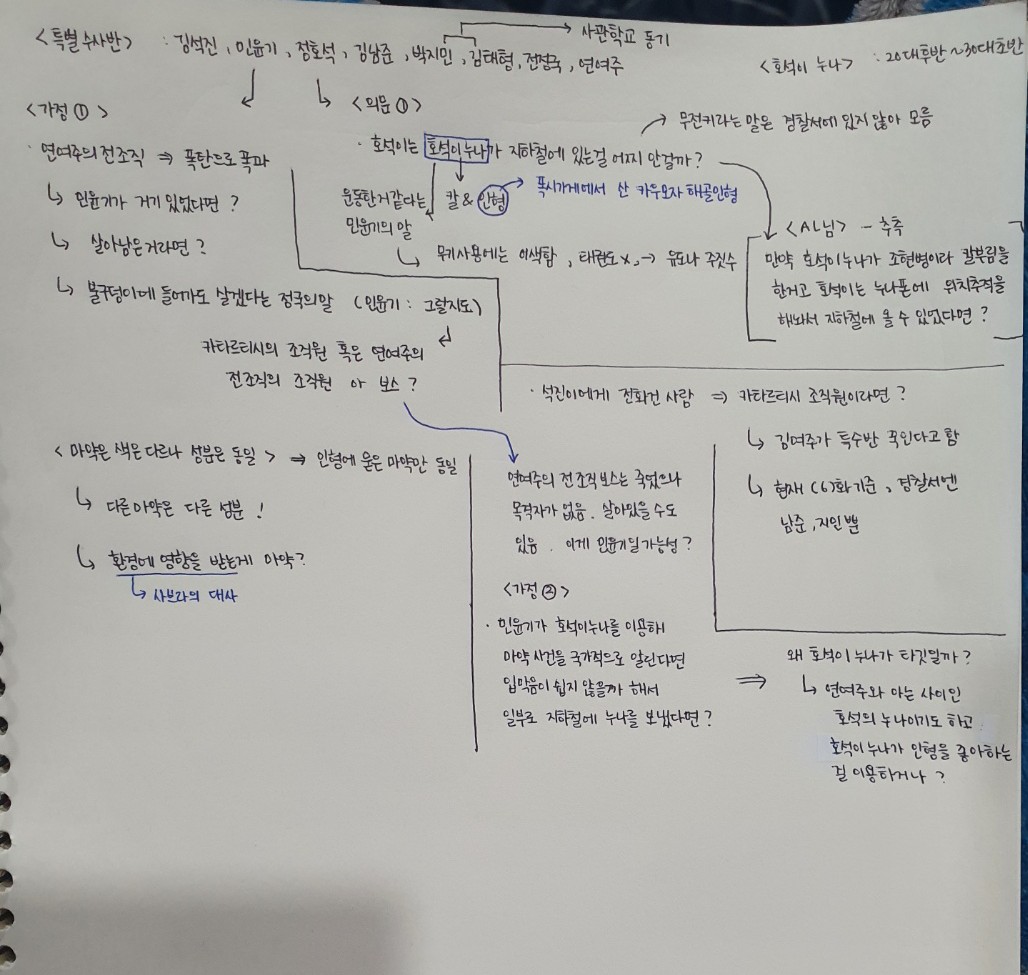 사관학교 동기
<특별수사반> : 김석진, 민윤기, 정호석, 김남준, 박지민, 김태형, 전정국, 연여주
<호석이 누나> : 20대후반~30대초반
<가정①>
· 연여주의 전조직 ⇒ 폭탄으로 폭파
↳ 민윤기가 거기 있었다면?
↳ 살아남은거라면?
↳ 불구덩이에 들어가도 살겠다는 정국의말 (민윤기 : 그럴지도)
카타르티시의 조직원 혹은 연여주의
전조직의 조직원 or 보스?
<의문①>
→ 무전키라는 말은 경찰서에 있지 않아 모름
· 호석이는 호석이누나가 지하철에 있는걸 어찌 안걸까?
칼 & 인형 → 폭시가게에서 산 카우모자 해골인형
운동한거같다는
민윤기의 말
↳ 무기사용에는 미색함, 태권도x, → 유도나 주짓수
<AL님> - 추측
만약 호석이누나가 조현병이라 칼부림을
한거고 호석이는 누나폰에 위치추적을
해놔서 지하철에 올 수 있었다면?
· 석진이에게 전화건 사람 ⇒ 카타르티시 조직원이라면?
↳ 김여주가 특수반 꾸민다고 함
↳ 현재 (67화기준, 경찰서엔
남준, 지민뿐
<마약은 색은 다르나 성분은 동일> ⇒ 인형에 묻은 마약만 동일
↳ 다른마약은 다른 성분!
↳ 환경에 영향을 받는게 마약?
↳ 사브라의 대사
연여주의 전조직보스는 죽었으나
목격자가 없음. 살아있을 수도
있음. 이게 민윤기일 가능성?
<가정②>
· 민윤기가 호석이누나를 이용해
마약 사건을 국가적으로 알린다면
입막음이 쉽지 않을까 해서
일부로 지하철에 누나를 보냈다면?
⇒ 왜 호석이누나가 타깃일까?
↳ 연여주와 아는 사이인
호석의 누나이기도 하고
호석이누나가 인형을 좋아하는
걸 이용하거나?